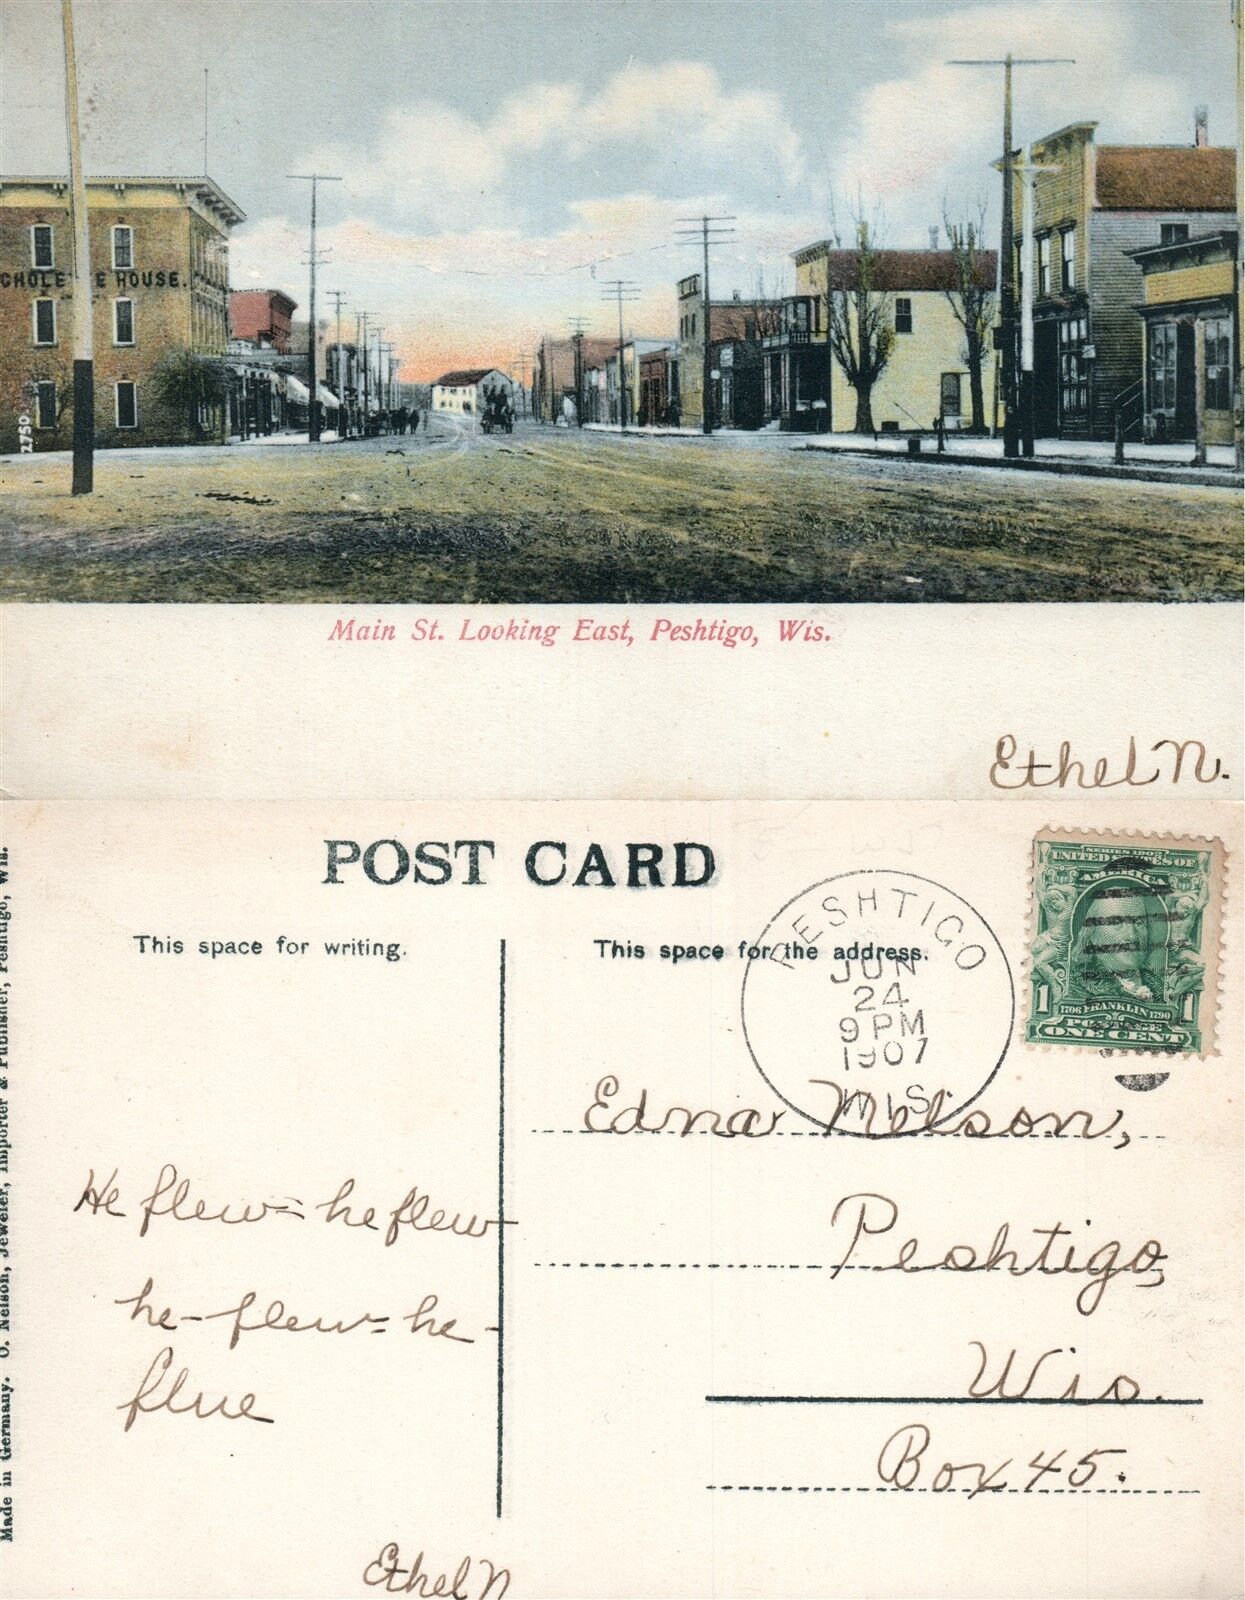 CHOLE E HOUSE.
12750
Main St. Looking East, Peshtigo, Wis.
Ethel N.
POST CARD
This space for writing.
This space for the address.
PESHTIGO
JUN
24
9 PM
1907
WIS.
SERIES 1902
UNITED STATES OF
AMERICA
1706 FRANKLIN 1790
1 POSTAGE 1
ONE CENT
Edna Nelson,
Peshtigo,
Wis.
Box 45.
He flew = he flew
he - flew = he -
flue
Ethel N
Made in Germany. O. Nelson, Jeweler, Importer & Publisher, Peshtigo, Wis.